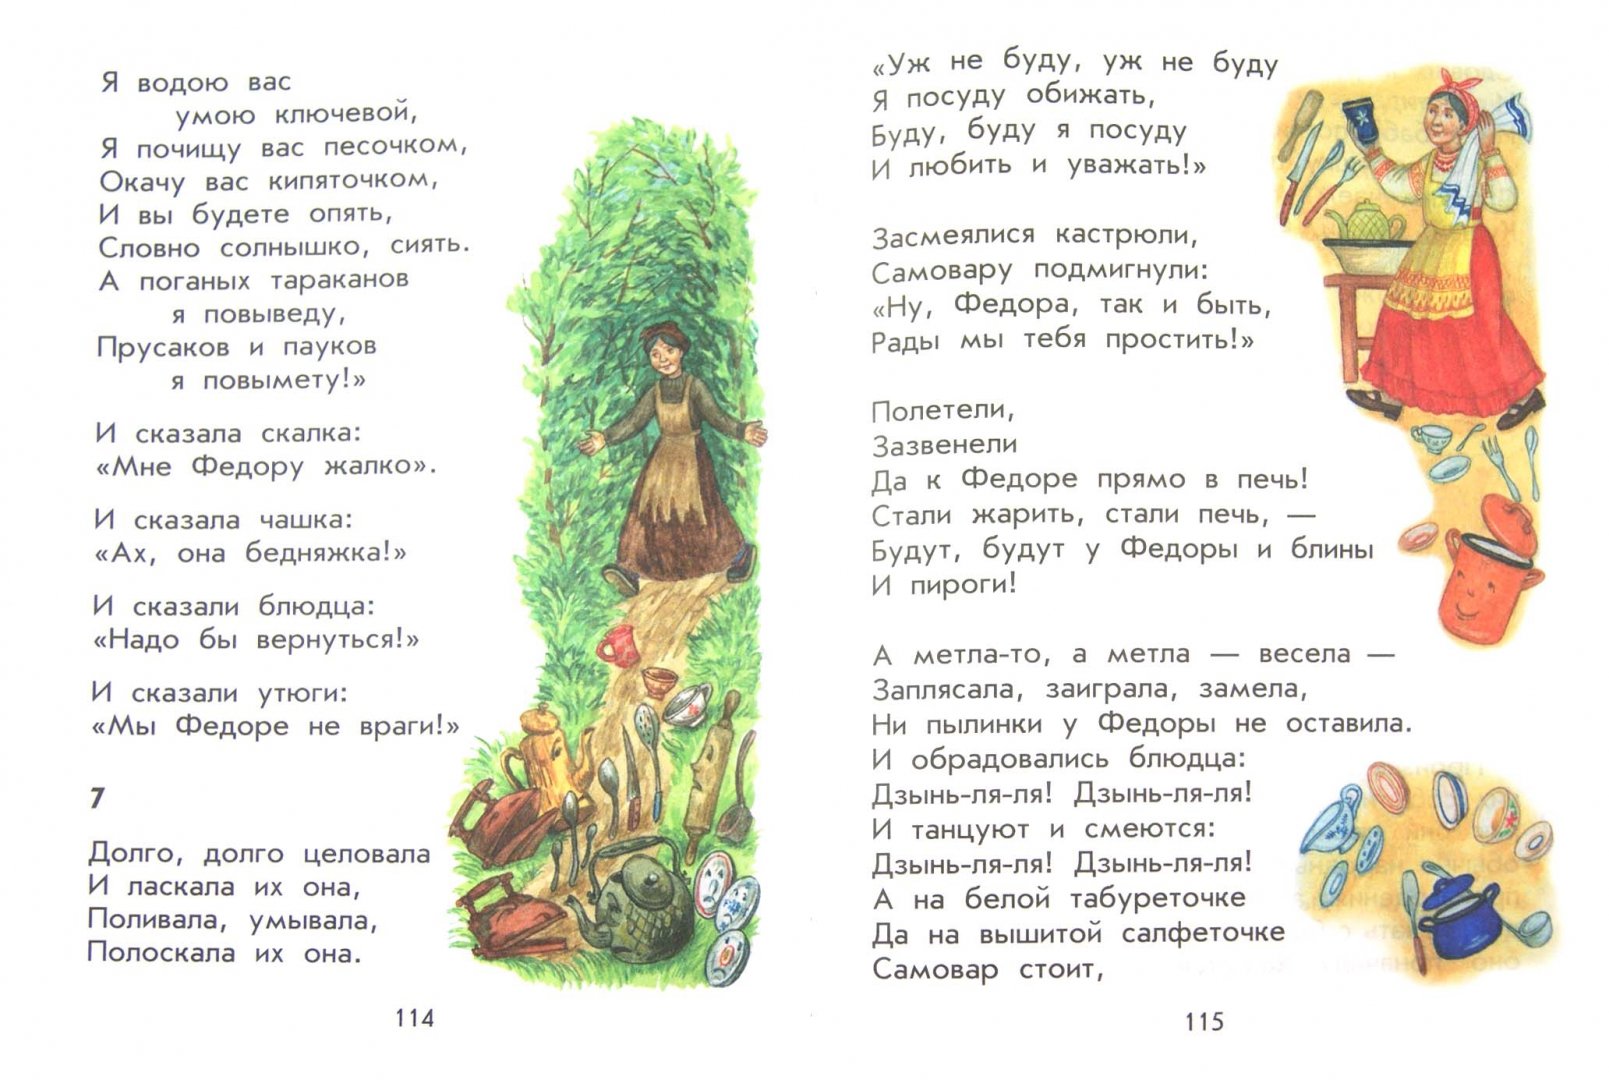 Я водою вас
умою ключевой,
Я почищу вас песочком,
Окачу вас кипяточком,
И вы будете опять,
Словно солнышко, сиять.
А поганых тараканов
я повыведу,
Прусаков и пауков
я повымету!»
И сказала скалка:
«Мне Федору жалко».
И сказала чашка:
«Ах, она бедняжка!»
И сказали блюдца:
«Надо бы вернуться!»
И сказали утюги:
«Мы Федоре не враги!»
7
Долго, долго целовала
И ласкала их она,
Поливала, умывала,
Полоскала их она.
114
«Уж не буду, уж не буду
Я посуду обижать,
Буду, буду я посуду
И любить и уважать!»
Засмеялися кастрюли,
Самовару подмигнули:
«Ну, Федора, так и быть,
Рады мы тебя простить!»
Полетели,
Зазвенели
Да к Федоре прямо в печь!
Стали жарить, стали печь, —
Будут, будут у Федоры и блины
И пироги!
А метла-то, а метла — весела —
Заплясала, заиграла, замела,
Ни пылинки у Федоры не оставила.
И обрадовались блюдца:
Дзынь-ля-ля! Дзынь-ля-ля!
И танцуют и смеются:
Дзынь-ля-ля! Дзынь-ля-ля!
А на белой табуреточке
Да на вышитой салфеточке
Самовар стоит,
115